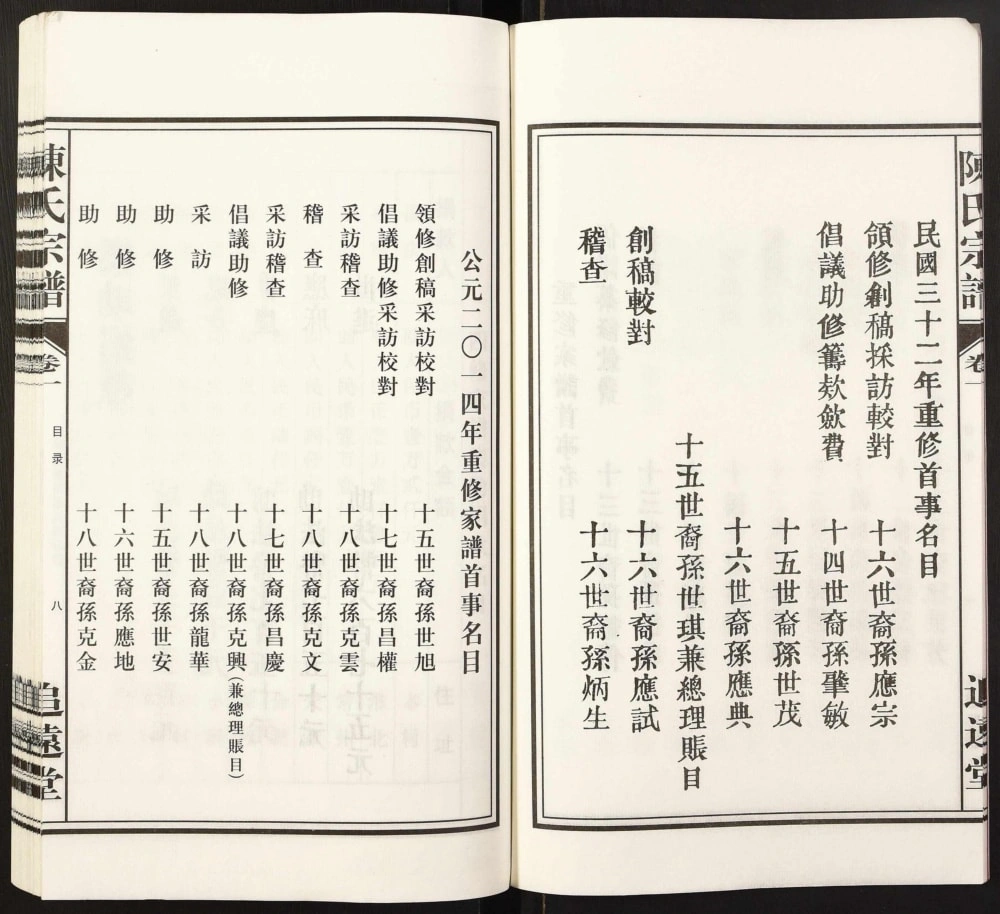 陳氏宗譜
卷一
追遠堂
民國三十二年重修首事名目
領修創稿採訪較對 十六世裔孫應宗
倡議助修籌欵歛費 十四世裔孫肇敏
十五世裔孫世茂
十六世裔孫應典
十五世裔孫世琪兼總理賬目
創稿較對 十六世裔孫應試
稽查 十六世裔孫炳生
公元二〇一四年重修家譜首事名目
領修創稿采訪校對 十五世裔孫世旭
倡議助修采訪校對 十七世裔孫昌權
采訪稽查 十八世裔孫克雲
稽查 十八世裔孫克文
采訪稽查 十七世裔孫昌慶
倡議助修 十八世裔孫克興（兼總理賬目）
采訪 十八世裔孫龍華
助修 十五世裔孫世安
助修 十六世裔孫應地
助修 十八世裔孫克金
陳氏宗譜
卷一
目录
八
追遠堂